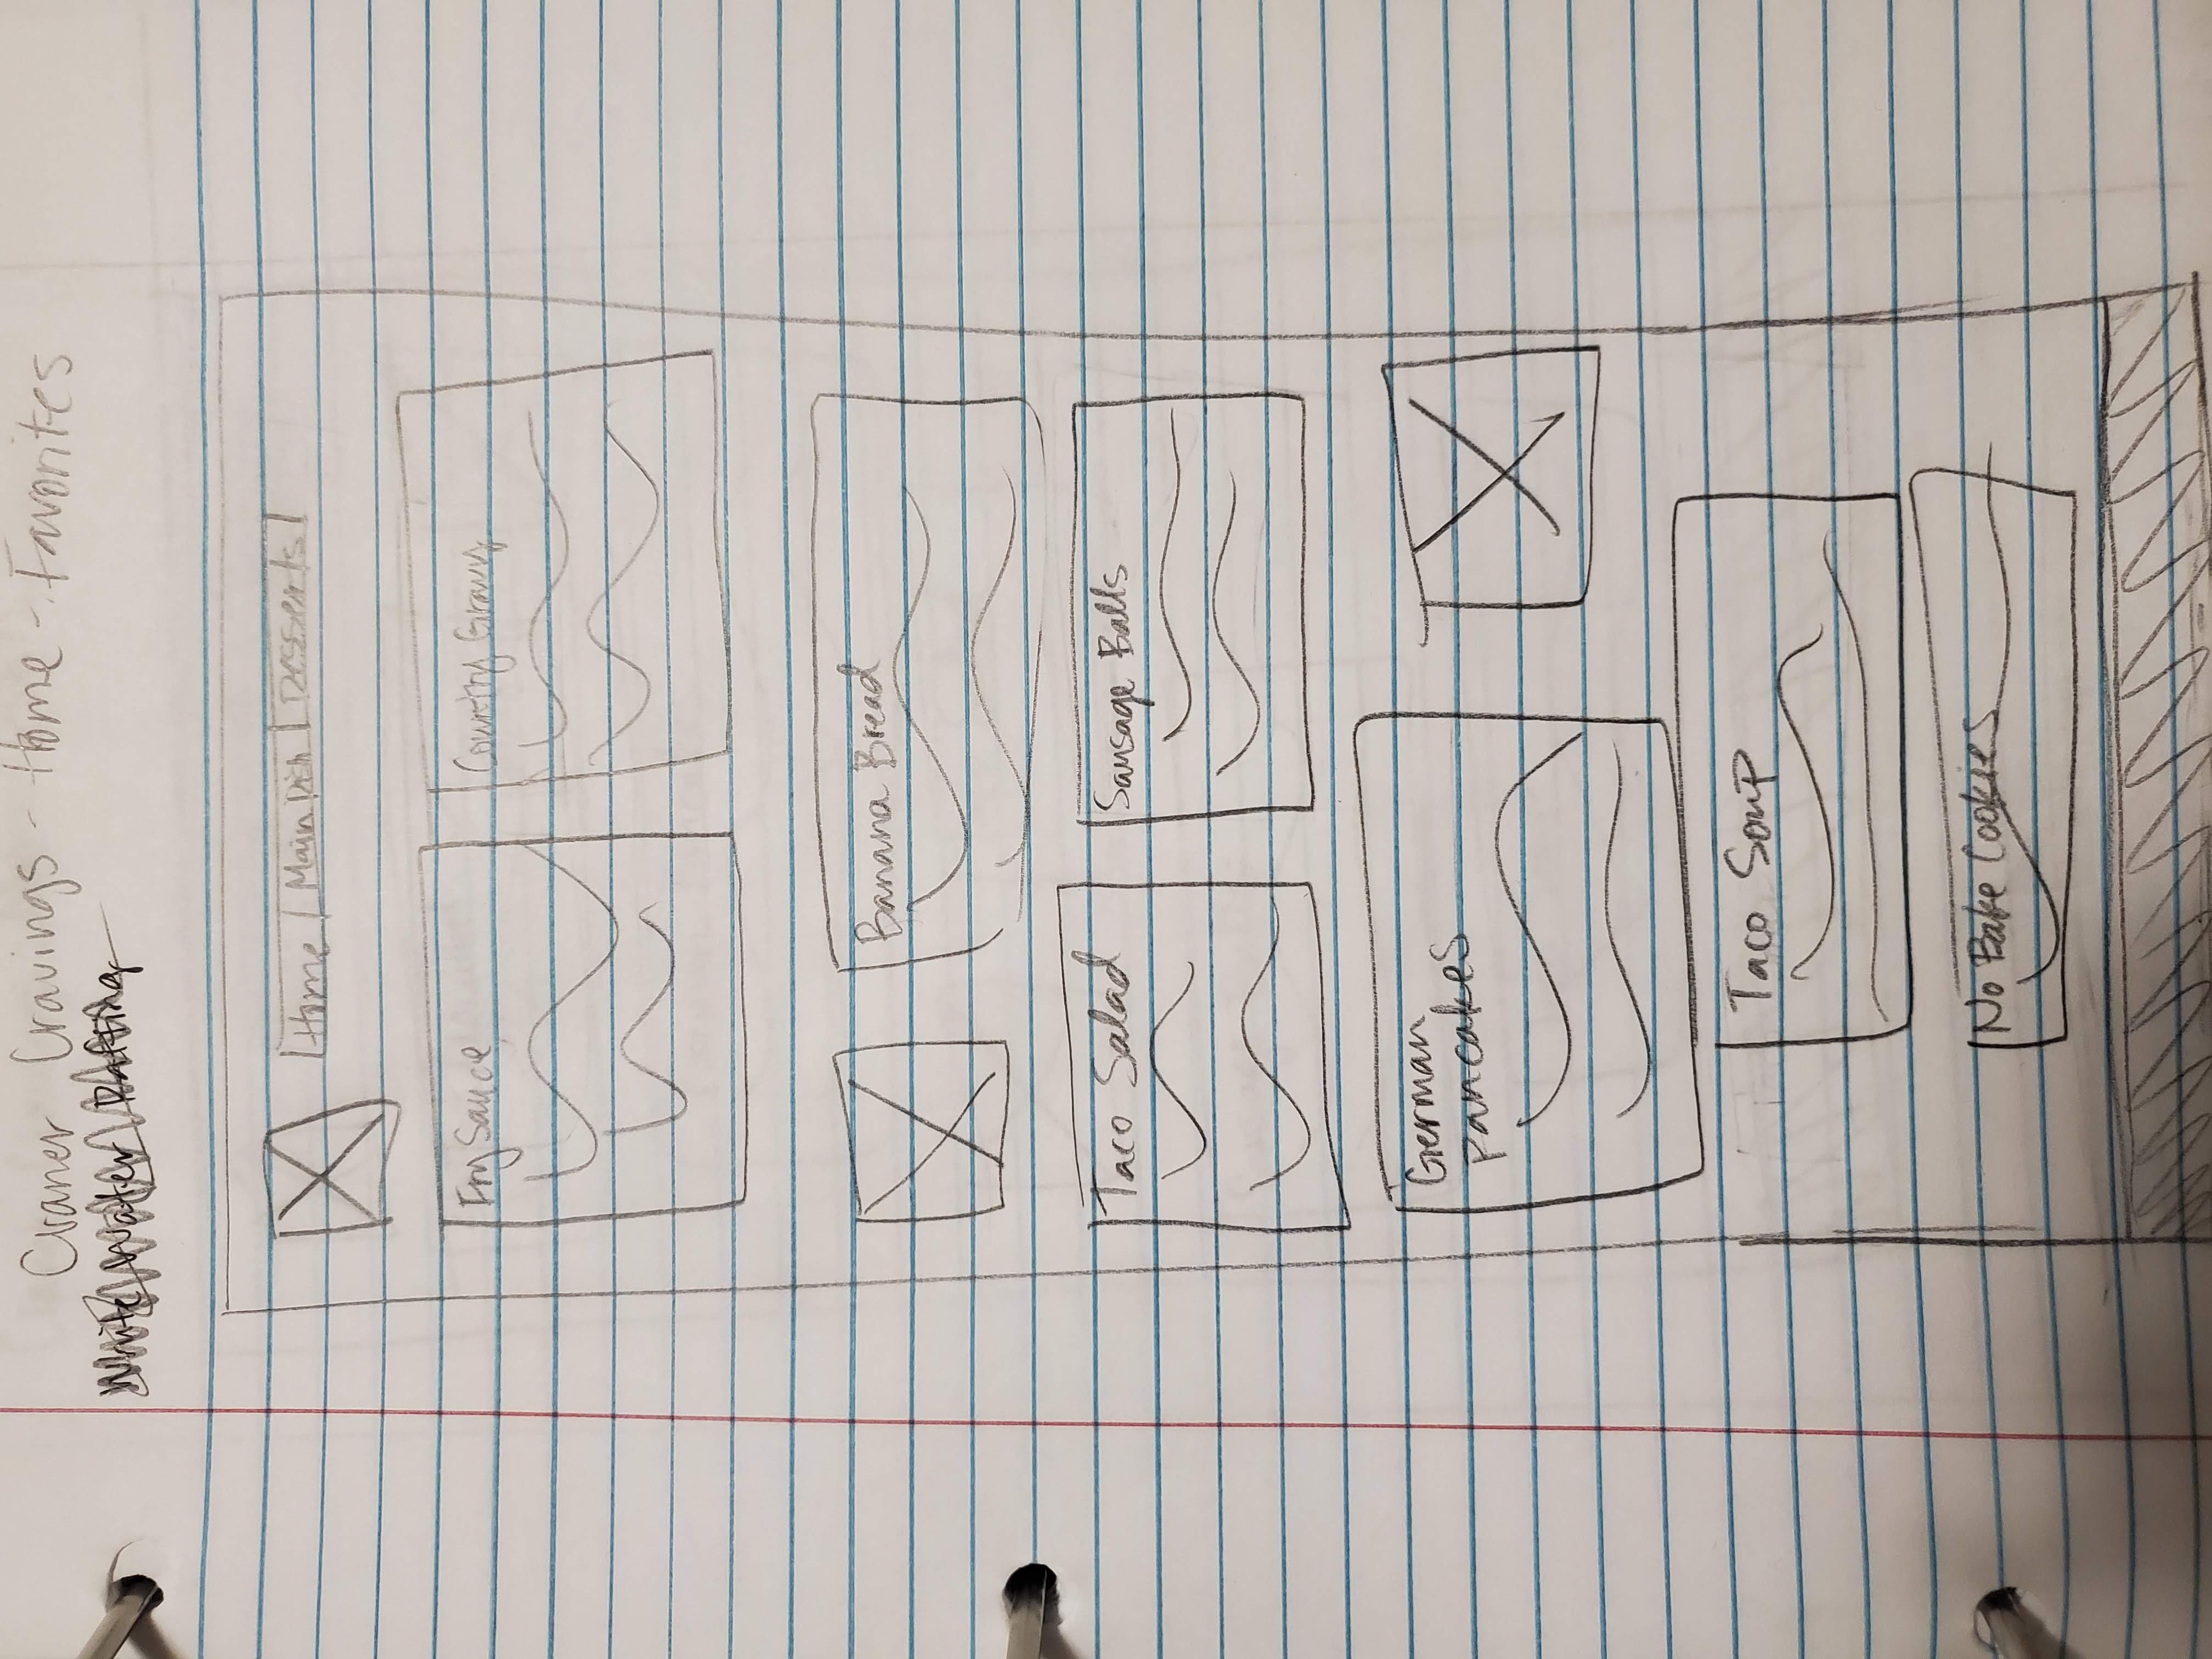 Craner Cravings - Home - Favorites
White Water Rafting
Home | Main Dish | Desserts
Fry Sauce
Country Gravy
Banana Bread
Taco Salad
Sausage Balls
German
Pancakes
Taco Soup
No Bake Cookies